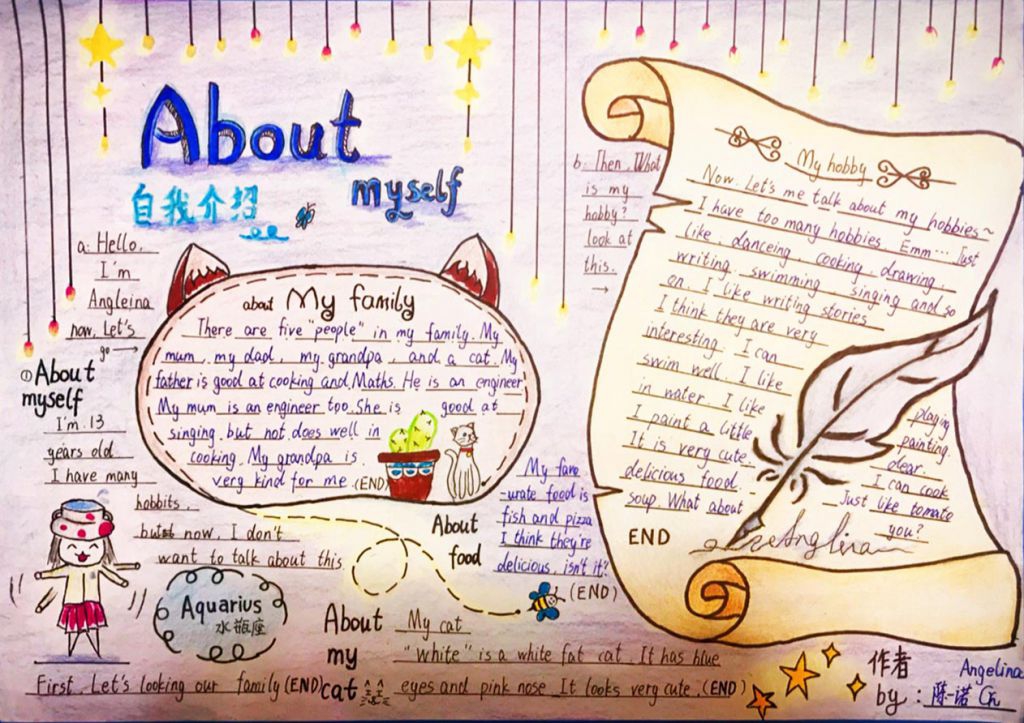 About
myself
自我介绍
a: Hello.
I'm
Angleina
now, Let's
go →
① About
myself
I'm 13
years old
I have many
hobbits.
but now, I don't
want to talk about this
Aquarius
水瓶座
First, Let's looking our family (END)
about My family
There are five "people" in my family. My
mum, my dad, my grandpa, and a cat. My
father is good at cooking and Maths. He is an engineer
My mum is an engineer too. She is good at
singing, but not does well in
cooking. My grandpa is
very kind for me. (END)
About
food
My favo
-urate food is
fish and pizza
I think they're
delicious, isn't it?
(END)
About
my
cat
My cat
"white" is a white fat cat. It has blue
eyes and pink nose. It looks very cute. (END)
b. Then, What
is my
hobby?
look at
this.
→
My hobby
Now. Let's me talk about my hobbies~
I have too many hobbies. Emm... Just
like, danceing, cooking, drawing,
writing, swimming, singing and so
on. I like writing stories
I think they are very
interesting. I can
swim well. I like playing
in water. I like painting.
I paint a little dear.
It is very cute. I can cook
delicious food. Just like tomato
soup. What about you?
END
Anglina
作者
by:
Angelina
陈一诺